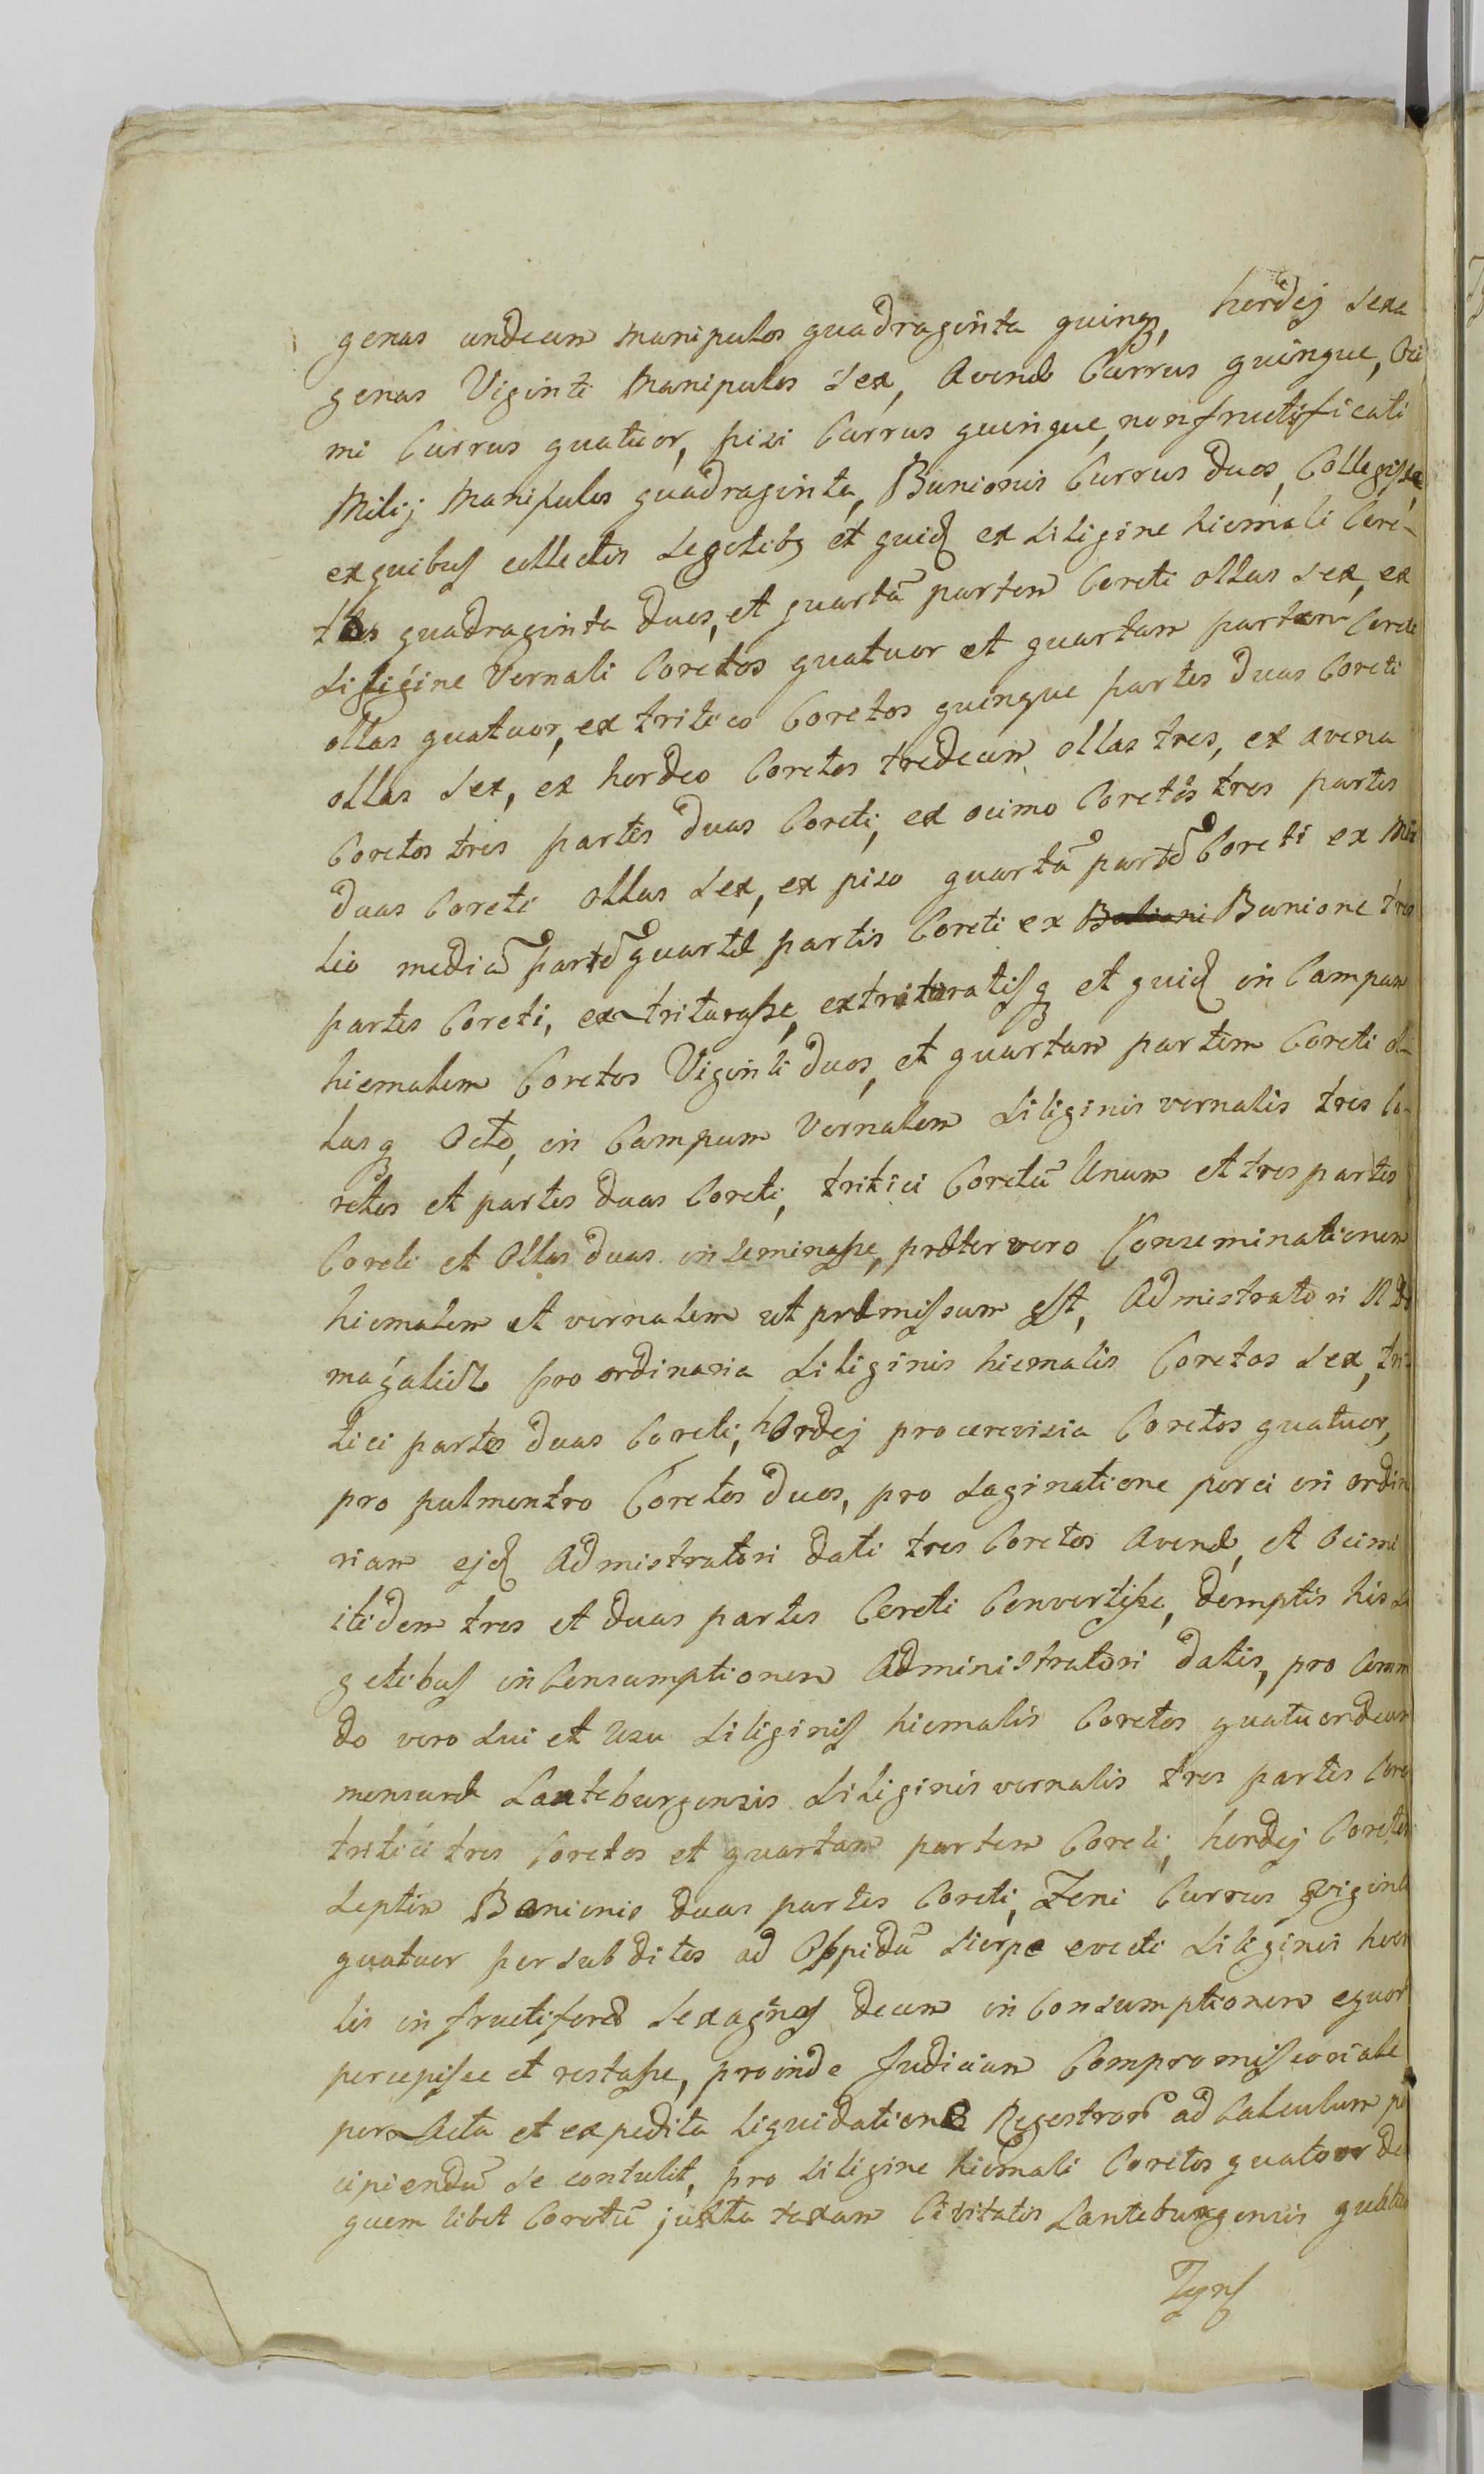 genas undecim manipulos quadraginta quinq, hordej sexa
genas Viginti Manipulos sex, Avenæ Currus quinque, Oci
mi Currus quatuor, pisi Currus quinque, non fructificati
Milij Manipulos quadraginta, Bunionis Currus duos, Collegisse,
ex quibus collectis segetibq et quid ex siligine hiemali Core-
tos quadraginta duos, et quartã partem Coreti ollas sex, ex
siligine Vernali Coretos quatuor et quartam partem Coreti
ollas quatuor, ex tritico Coretos quinque partes duas Coreti
ollas sex, ex hordeo Coretos tredecim ollas tres, ex avena
Coretos tres partes duas Coreti, ex ocimo Coretos tres partes
duas Coreti ollas sex, ex piso quartã partẽ Coreti ex Mi
lio mediã partẽ quartæ partis Coreti ex Bunione tres
partes Coreti, extriturasse, extrituratisq et quid in Campum
hiemalem Coretos Viginti duos, et quartam partem Coreti ol-
lasq Octo, in Campum Vernalem siliginis vernalis tres Co-
retos et partes duas Coreti, tritici Coretũ Unum et tres partes
Coreti et Ollas duas inseminasse, præter vero Conseminationem
hiemalem et vernalem ut præmissum est, Admistratori
pro ordinaria siliginis hiemalis Coretos sex, tri
tici partes duas Coreti, hordej pro cerevisia Coretos quatuor,
pro pulmentro Coretos duos, pro saginatione porci in ordin
riam ejd Admistratori dati tres Coretos Avenæ, et Ocimi
itidem tres et duas partes Coreti Convertisse, demptis his se
getibus in Consumptionem Administratori datis, pro Comm
do vero sui et usu siliginis hiemalis Coretos quatuordecim
mensuræ Lauteburgensis siliginis vernalis tres partes Core
tritici tres Coretos et quartam partem Coreti, hordej Coretos
septem Bunionis duas partes Coreti, Feni Currus viginti
quatuor per subditos ad Oppidũ Sierpc evecti siliginis hiem
lis infructiferæ sexagenas decem in Consumptionem equor
percepisse et restasse, proinde Judicium Compromissoriale
peracta et expedita liquidatione Regestror̃ ad Calculum p
cipiendũ se contulit, pro siligine hiemali Coretos quatuor de
quem libet Coretũ juxta taxam Civitatis Lauteburgensis